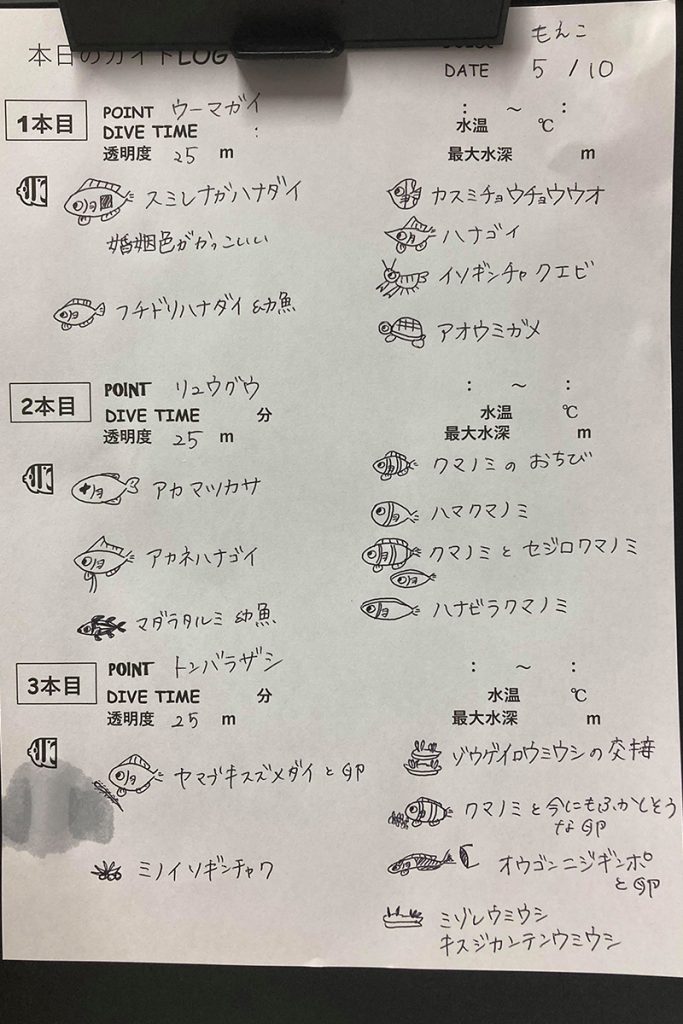 本日のガイドLOG
もえこ
DATE 5 / 10
1本目
POINT ウーマガイ
DIVE TIME :
透明度 25 m
: ～ :
水温 ℃
最大水深 m
スミレナガハナダイ
婚姻色がかっこいい
フチドリハナダイ 幼魚
カスミチョウチョウウオ
ハナゴイ
イソギンチャクエビ
アオウミガメ
2本目
POINT リュウグウ
DIVE TIME 分
透明度 25 m
: ～ :
水温 ℃
最大水深 m
アカマツカサ
アカネハナゴイ
マダラタルミ 幼魚
クマノミの おちび
ハマクマノミ
クマノミと セジロクマノミ
ハナビラクマノミ
3本目
POINT トンバラザシ
DIVE TIME 分
透明度 25 m
: ～ :
水温 ℃
最大水深 m
ヤマブキスズメダイと卵
ミノイソギンチャク
ゾウゲイロウミウシの交接
クマノミと今にもふかしそう
な卵
オウゴンニジギンポ
と卵
ミゾレウミウシ
キスジカンテンウミウシ